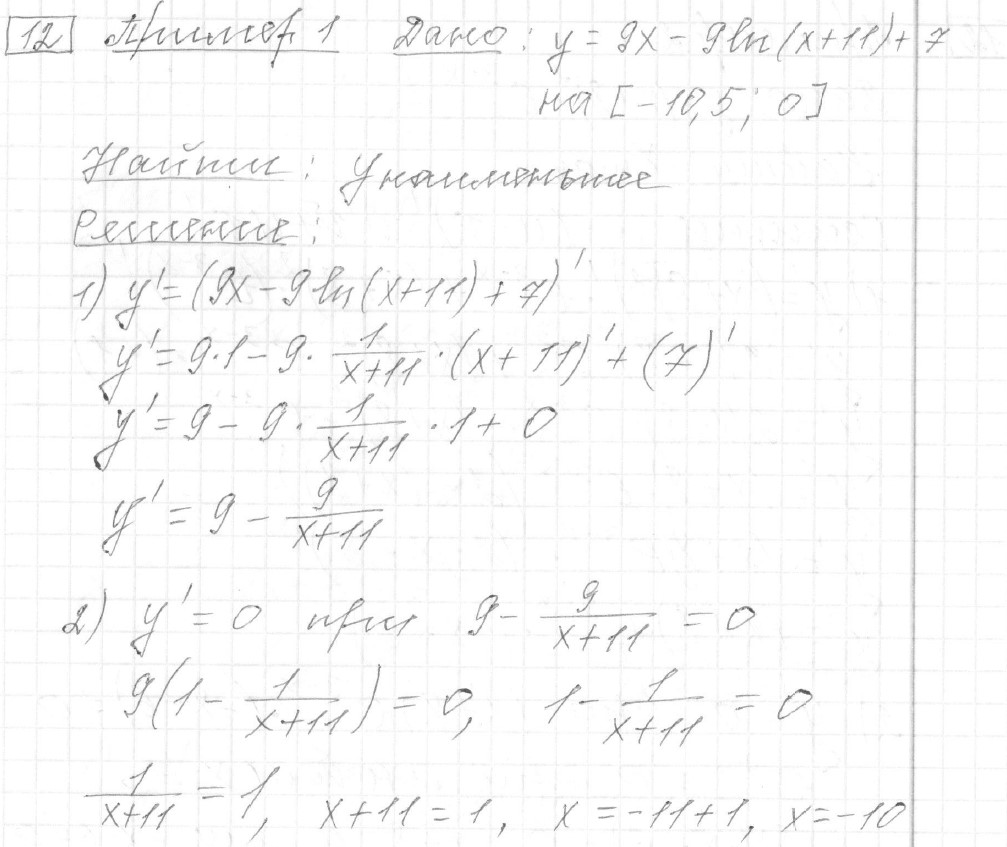 12 Пример 1 Дано: y = 9x - 9ln(x+11) + 7
на [-10,5; 0]
Найти: y наименьшее
Решение:
1) y' = (9x - 9ln(x+11) + 7)'
y' = 9·1 - 9· 1/(x+11) ·(x+11)' + (7)'
y' = 9 - 9· 1/(x+11) ·1 + 0
y' = 9 - 9/(x+11)
2) y' = 0 при 9 - 9/(x+11) = 0
9(1 - 1/(x+11)) = 0, 1 - 1/(x+11) = 0
1/(x+11) = 1, x+11 = 1, x = -11+1, x = -10